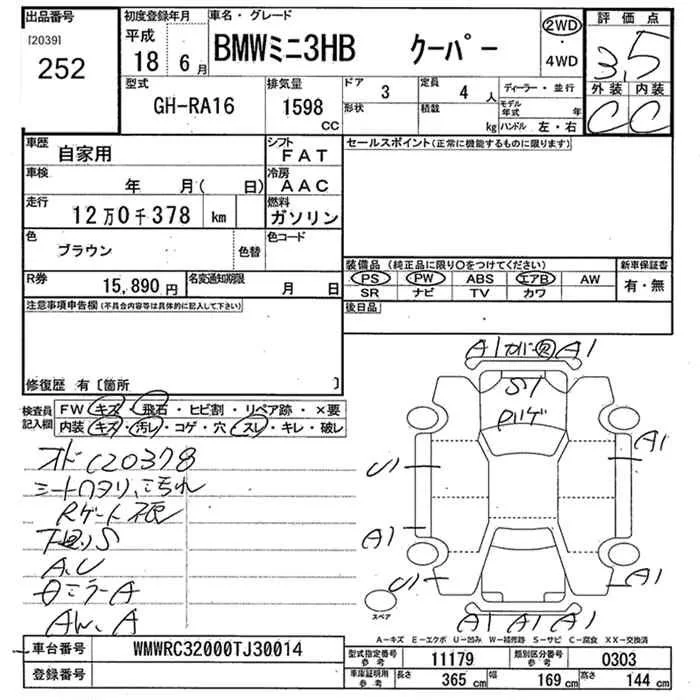 出品番号 初度登録年月 車名・グレード 2WD 評価点
[2039] 平成 BMWミニ3HB クーパー 3.5
252 18 6月 4WD
型式 排気量 ドア 3 定員 4 人 ディーラー・並行 外装 内装
GH-RA16 1598 cc 形状 積載 kg モデル年式 年 C C
ハンドル 左・右
車歴 自家用 シフト FAT セールスポイント(正常に機能するものに限ります)
車検 年 月( 日) 冷房 AAC
走行 12万0千378 km 燃料 ガソリン
色 ブラウン 色替 色コード
装備品 (純正品に限り○をつけてください) 新車保証書
R券 15,890円 名変通知期限 月 日 PS PW ABS エアB AW 有・無
SR ナビ TV カワ
注意事項申告欄(不具合内容等は具体的に記入して下さい) 後日品
A1 A1
S1
修復歴 有〔箇所 〕
検査員記入欄 FW キズ・飛石・ヒビ割・リペア跡・×要
内装 キズ・汚レ・コゲ・穴・スレ・キレ・破レ
A1
U1
A1
U1 A1
A.U
A
AW.A
スペア
A1 A1 A1
A-キズ E-エクボ U-凹み W-補修跡 S-サビ C-腐食 XX-交換済
車台番号 WMWRC32000TJ30014 型式指定番号 参考 11179 類別区分番号 参考 0303
登録番号 車庫証明用 参考 長さ 365 cm 幅 169 cm 高さ 144 cm